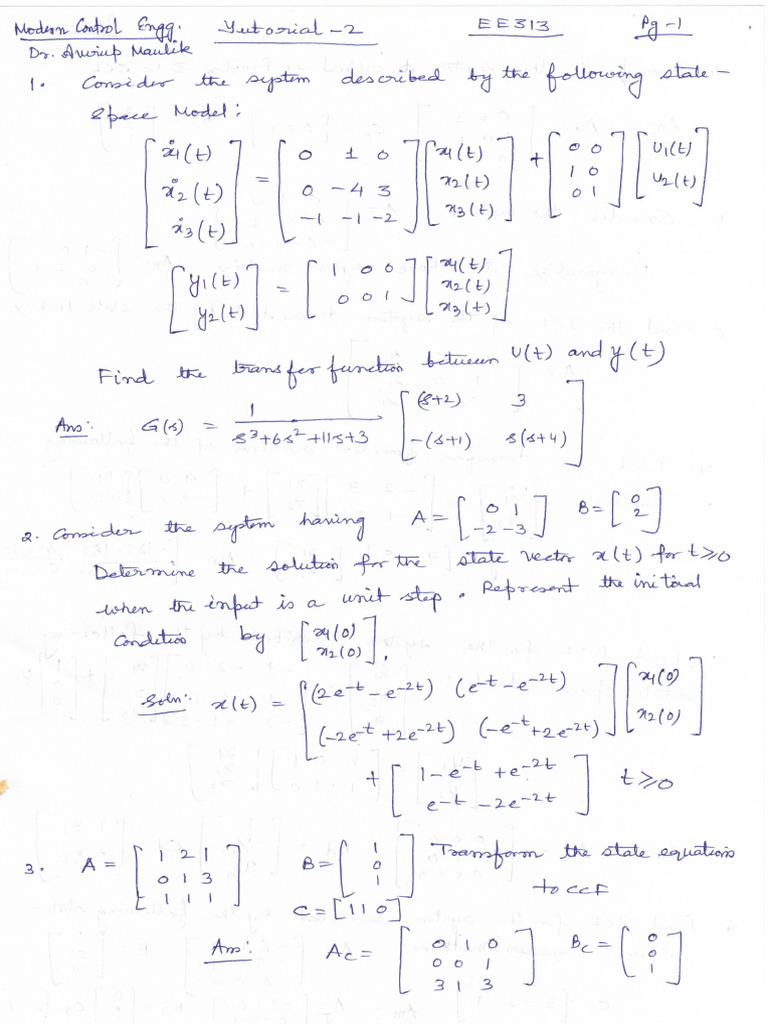 Modern Control Engg. Tutorial-2 EE313 Pg-1
Dr. Avirup Maulik
1. Consider the system described by the following state-
Space Model:
[ẋ1(t) ẋ2(t) ẋ3(t)] = [0 1 0; 0 -4 3; -1 -1 -2] [x1(t) x2(t) x3(t)] + [0 0; 1 0; 0 1] [U1(t) U2(t)]
[y1(t) y2(t)] = [1 0 0; 0 0 1] [x1(t) x2(t) x3(t)]
Find the transfer function between U(t) and y(t)
Ans: G(s) = 1/(s³+6s²+11s+3) [(s+2) 3; -(s+1) s(s+4)]
2. Consider the system having A = [0 1; -2 -3] B = [0; 2]
Determine the solution for the state vector x(t) for t≥0
when the input is a unit step. Represent the initial
Condition by [x1(0) x2(0)].
Soln: x(t) = [(2e^-t - e^-2t) (e^-t - e^-2t); (-2e^-t + 2e^-2t) (-e^-t + 2e^-2t)] [x1(0) x2(0)]
+ [1 - e^-t + e^-2t; e^-t - 2e^-2t] t≥0
3. A = [1 2 1; 0 1 3; 1 1 1] B = [1; 0; 1] Transform the state equations
to CCF
C = [1 1 0]
Ans: Ac = [0 1 0; 0 0 1; 3 1 3] Bc = [0; 0; 1]